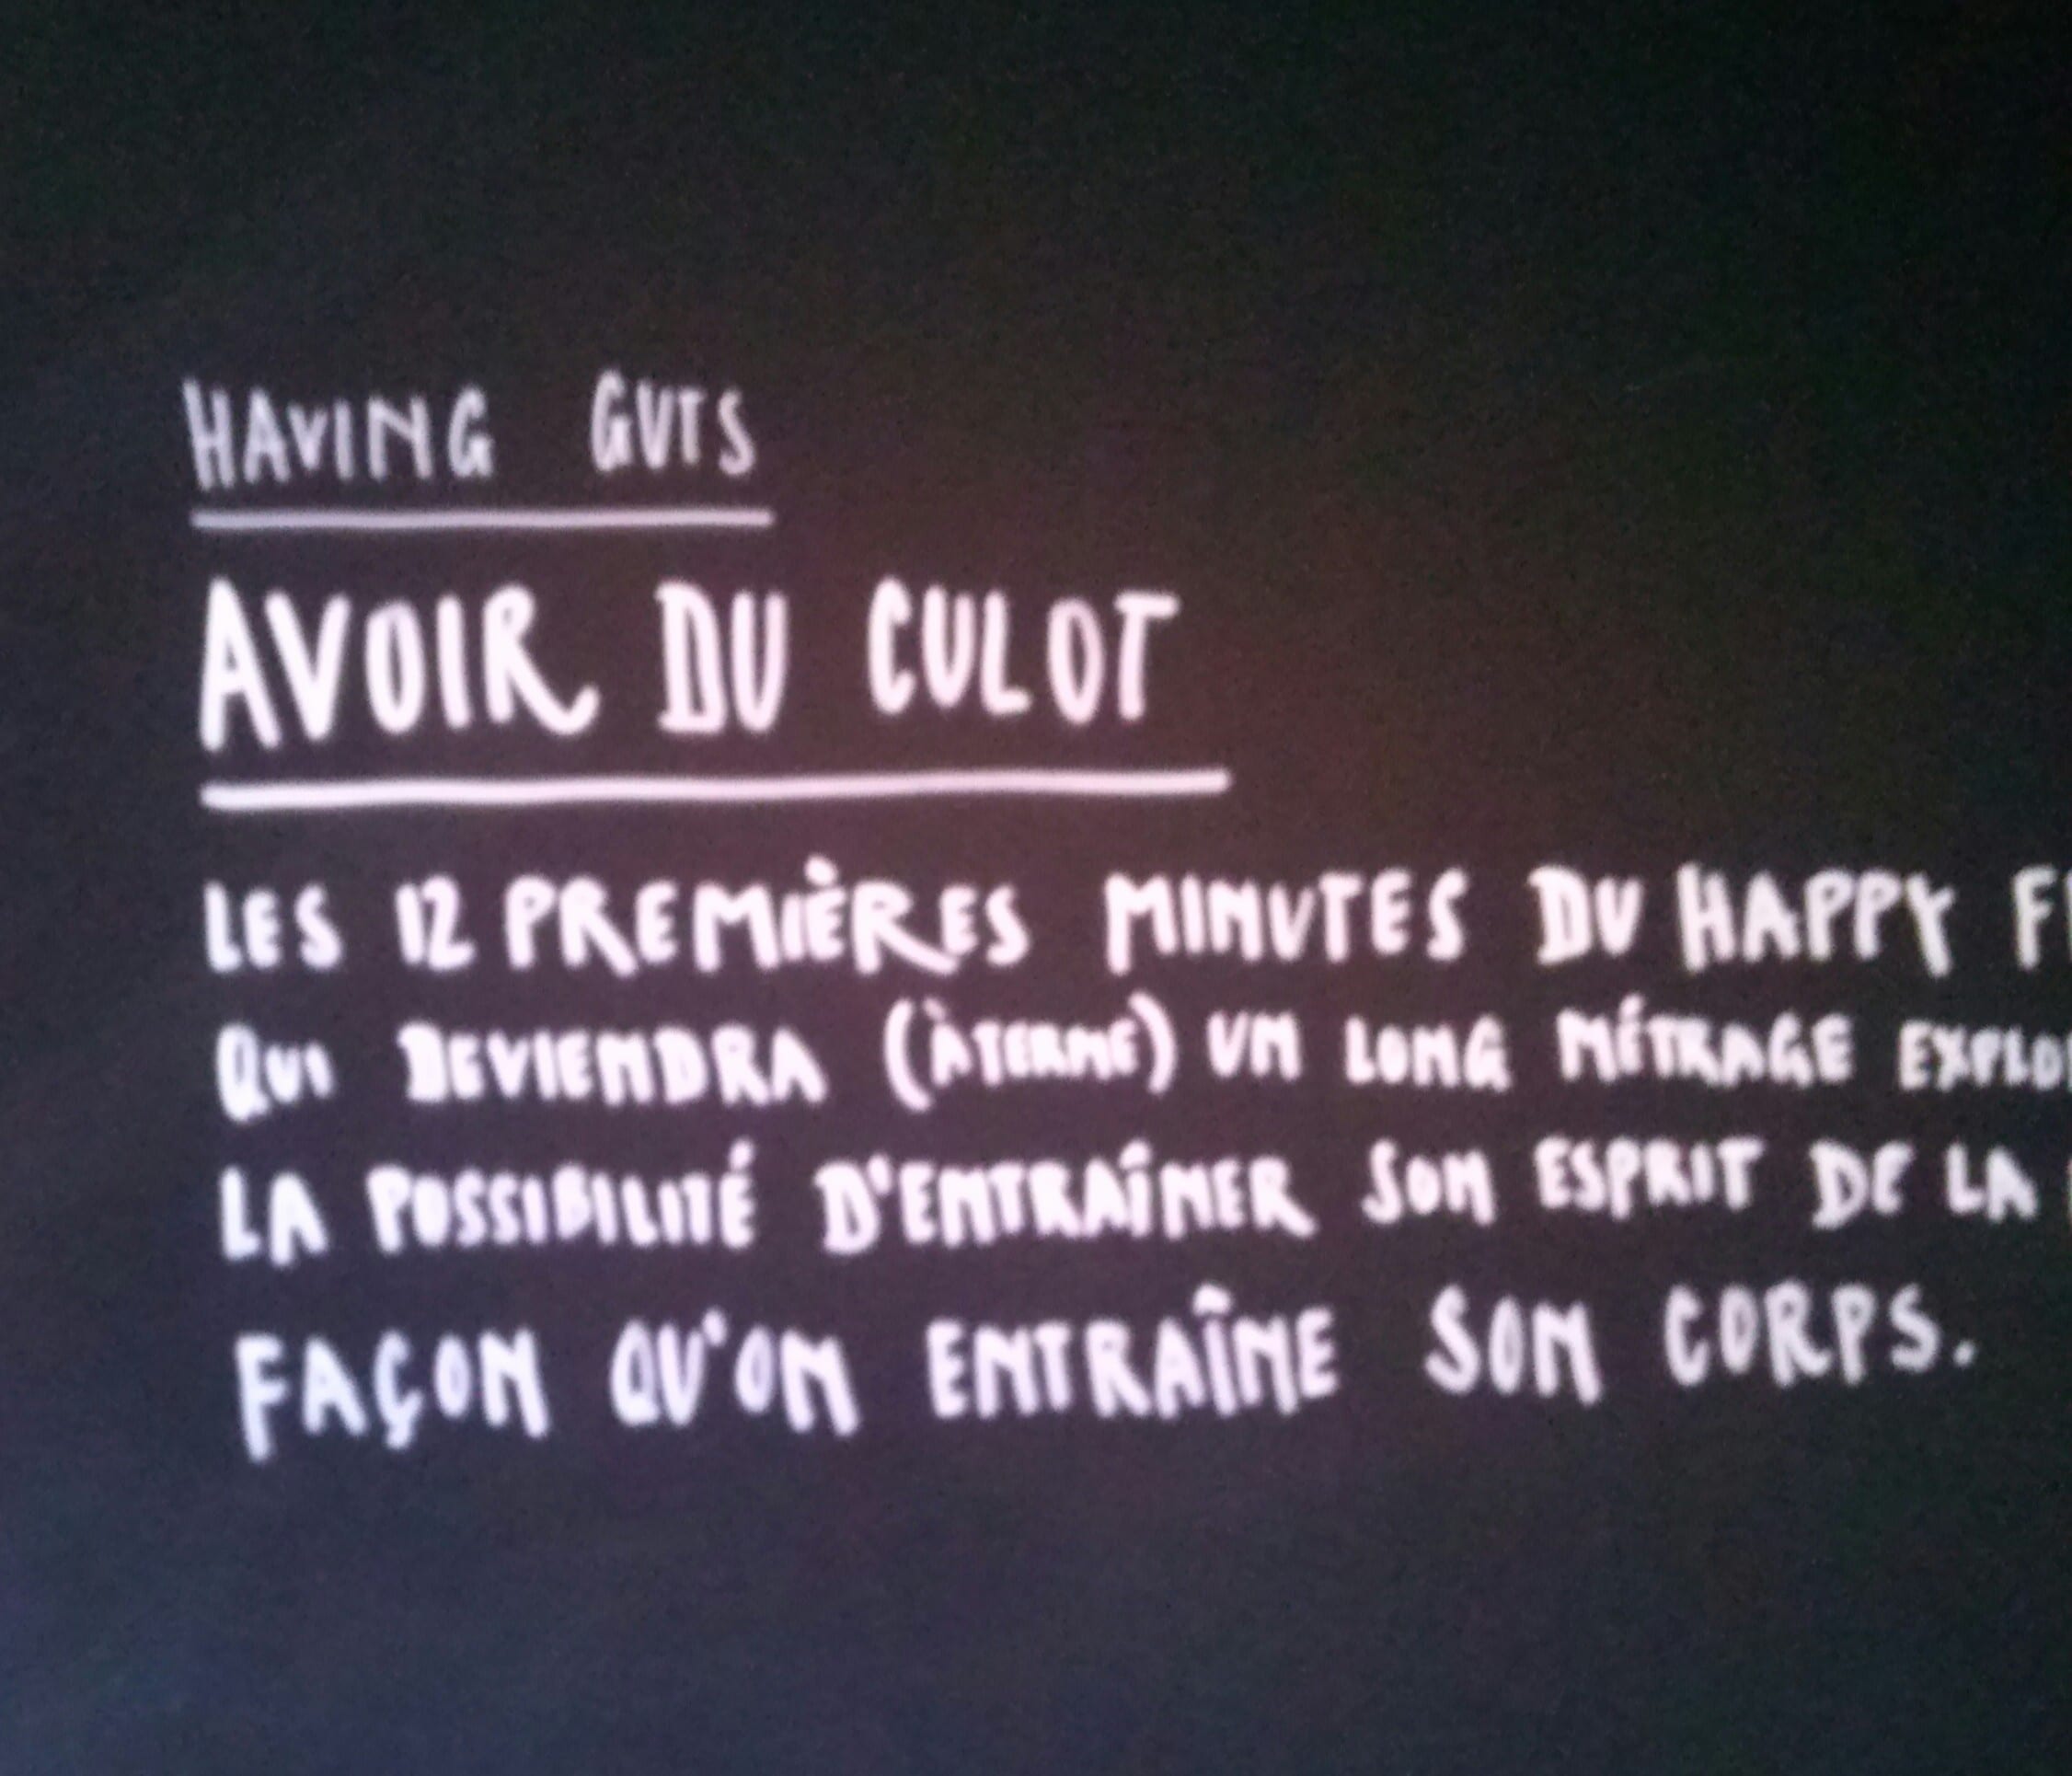 HAVING GUTS
AVOIR DU CULOT
LES 12 PREMIÈRES MINUTES DU HAPPY
QUI DEVIENDRA (À TERME) UN LONG MÉTRAGE
LA POSSIBILITÉ D'ENTRAÎNER SON ESPRIT DE LA
FAÇON QU'ON ENTRAÎNE SON CORPS.